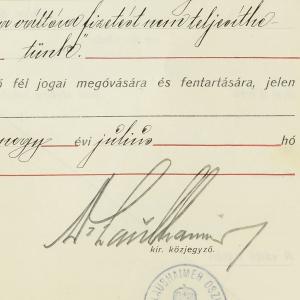 a váltóra fizetést nem teljesíthe-
tünk".
ő fél jogai megóvására és fentartására, jelen
négy évi július hó
Dr Laushaimer
kir. közjegyző.
LAUSHAIMER OSZ